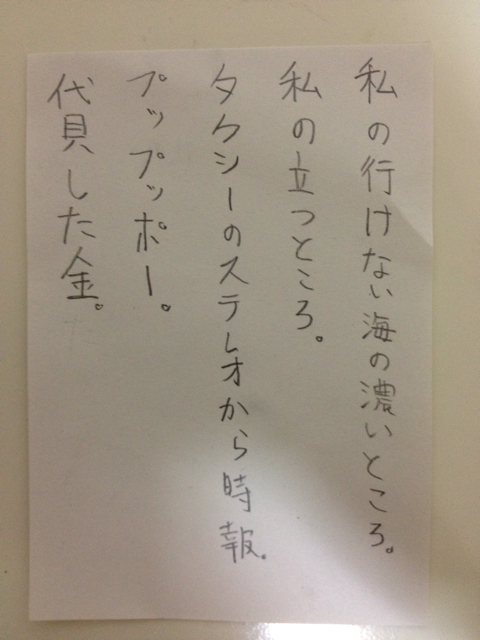 私の行けない海の濃いところ。
私の立つところ。
タクシーのステレオから時報。
プップップッポー。
貸した金。